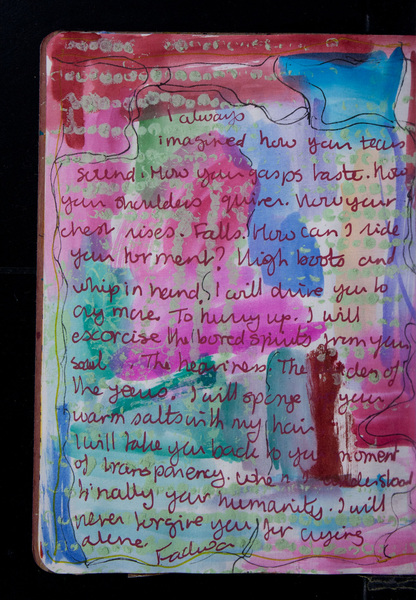 I always
imagined how your tears
sound. How your gasps taste. How
your shoulders quiver. How your
chest rises. Falls. How can I ride
your torment? High boots and
whip in hand, I will drive you to
cry more. To hurry up. I will
excorcise the bored spirits from your
soul. The heaviness. The
the years. I will sponge your
warm salts with my hair
I will take you back to your moment
of transparency. When I understood
finally your humanity. I will
never forgive you for crying
alone
Fadwa